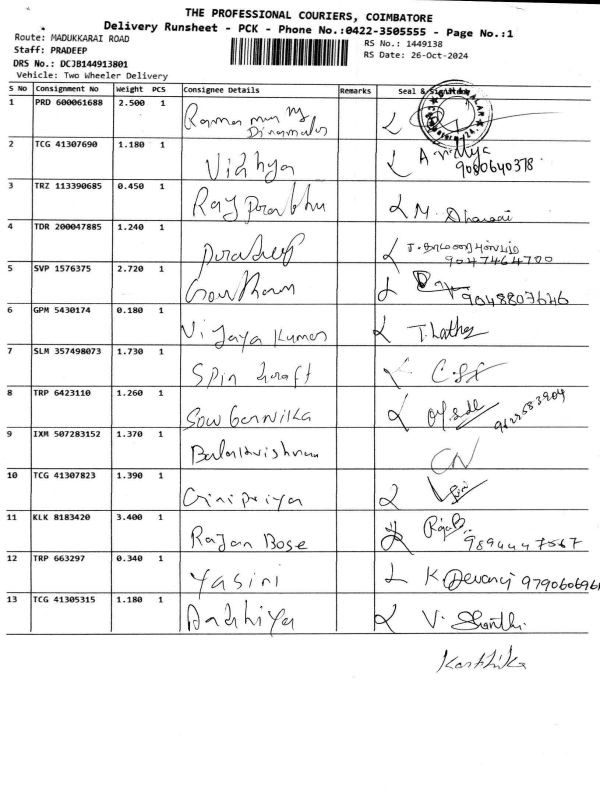 THE PROFESSIONAL COURIERS, COIMBATORE
Delivery Runsheet - PCK - Phone No.:0422-3505555 - Page No.:1
Route: MADUKKARAI ROAD
RS No.: 1449138
Staff: PRADEEP
RS Date: 26-Oct-2024
DRS No.: DCJB144913801
Vehicle: Two Wheeler Delivery
S No Consignment No Weight PCS Consignee Details Remarks Seal & Signature
1 PRD 600061688 2.500 1
2 TCG 41307690 1.180 1 Vidhya
9080640378
3 TRZ 113390685 0.450 1 Raj Prabhu M.
4 TDR 200047885 1.240 1 Pradeep
9047464700
5 SVP 1576375 2.720 1 Gowtham 9048807646
6 GPM 5430174 0.180 1 Vijaya Kumar
7 SLM 357498073 1.730 1 Spin Kraft
8 TRP 6423110 1.260 1
9 IXM 507283152 1.370 1 Balakrishnan CN
10 TCG 41307823 1.390 1
11 KLK 8183420 3.400 1 Rajan Bose
9894447567
12 TRP 663297 0.340 1 Yasini K Devaraj 9790606961
13 TCG 41305315 1.180 1 V. Shanthi
Karthika